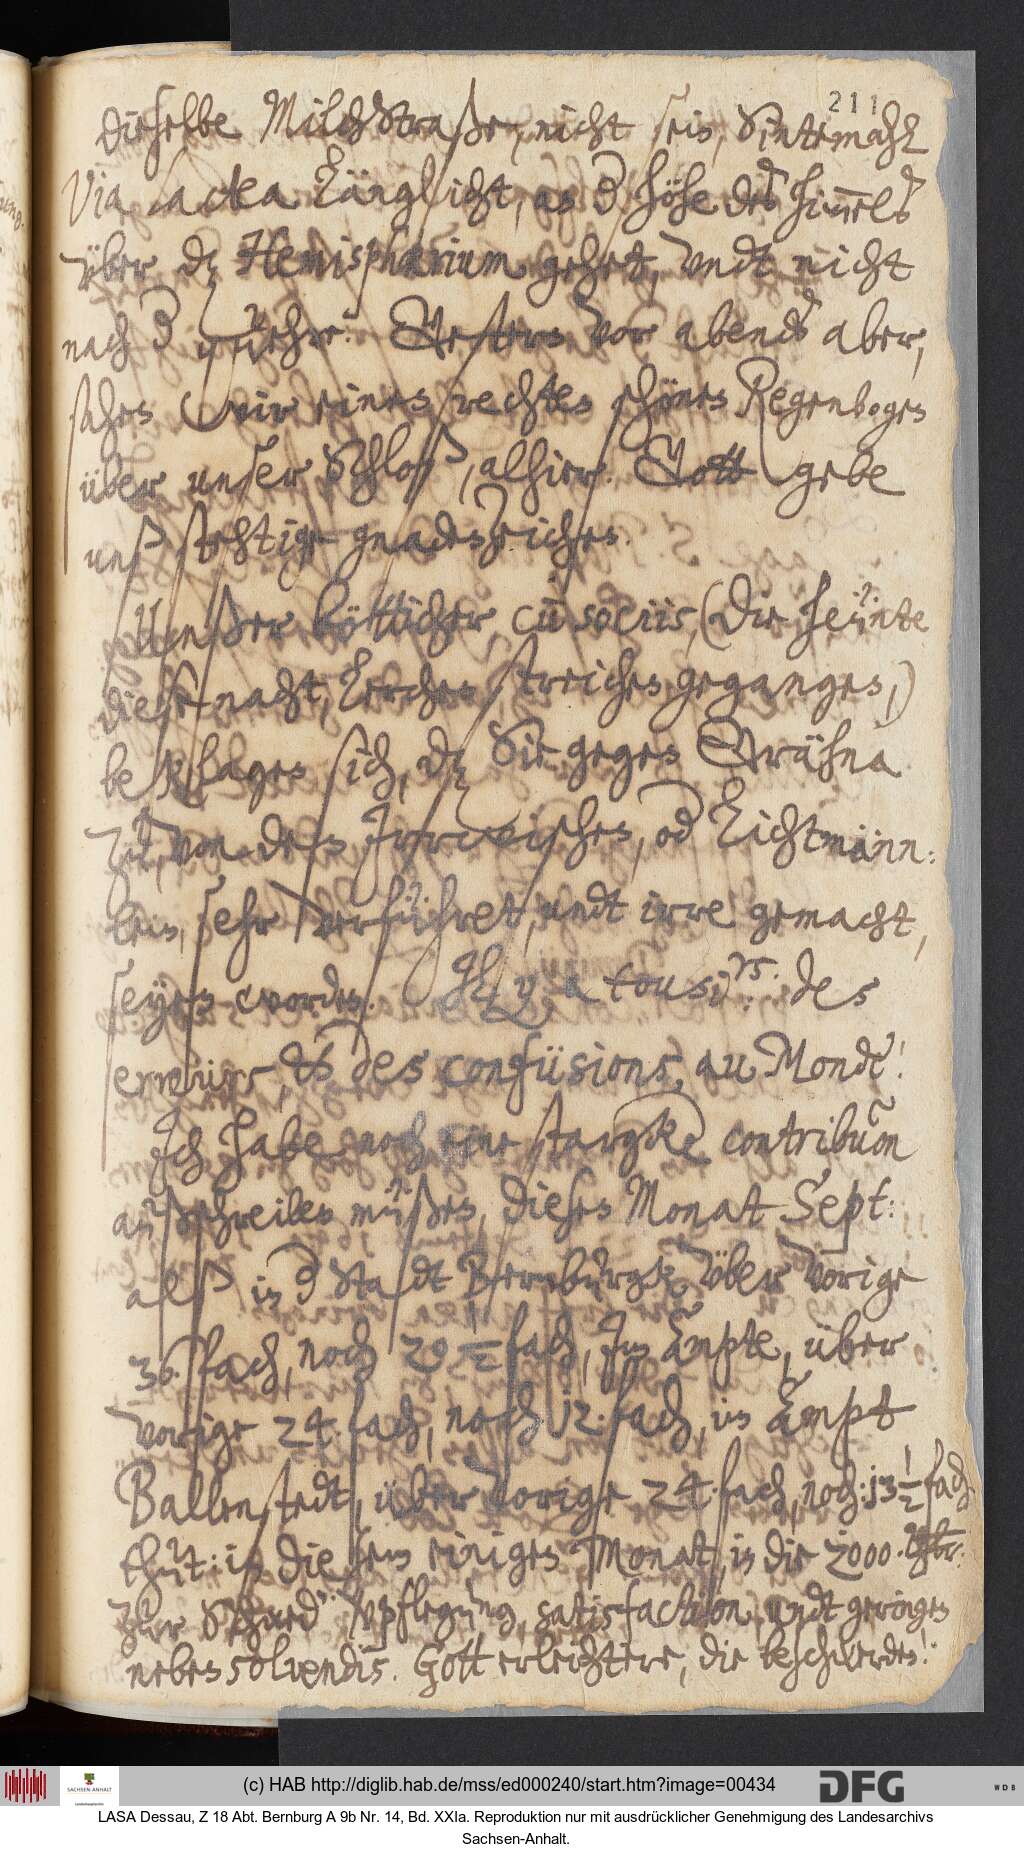 211
dieselbe MilchStraße, nicht sein, Sintemahl
Via lactea länglicht, an d. höhe des himels
über dz Hemisphærium gehet, undt nicht
nach d quehre. Gestern vor abends aber,
sahen wir einen rechten schönen Regenbogen
über unser Schloß, alhier. Gott gebe
unß stehtige gnadenzeichen.
Unßer böttticher, cu sociis, (die heünte
diese nacht, lerchen streichen gegangen,)
beklagen sich, dz Sie gegen Gräfna
zu, von den Irrwischen, od Lichtmänn:
lein, sehr verführet, undt irre gemacht,
seyen worden. Il y a tousj.rs. des
erreurs, & des confüsions, au Mondè!
Ich habe noch eine stargke contribuon
außschreiben müßen, dieses Monat Sept:
alß in d Stadt Bernburgk über vorige
36 fach, noch 29 1/2 fach, Im Ampte, über
vorige 24 fach, noch 12. fach, in Ampt
Ballenstedt, über vorige 24. fach, noch: 13 1/2 fach
thut: in diesem einigen Monat, in die 2000
zur Schwed: Vpflegung, satisfaction, undt
nebensolvendis. Gott erleichtere, die beschwerden!
(c) HAB http://diglib.hab.de/mss/ed000240/start.htm?image=00434
SACHSEN-ANHALT
DFG
WDB
LASA Dessau, Z 18 Abt. Bernburg A 9b Nr. 14, Bd. XXIa. Reproduktion nur mit ausdrücklicher Genehmigung des Landesarchivs
Sachsen-Anhalt.